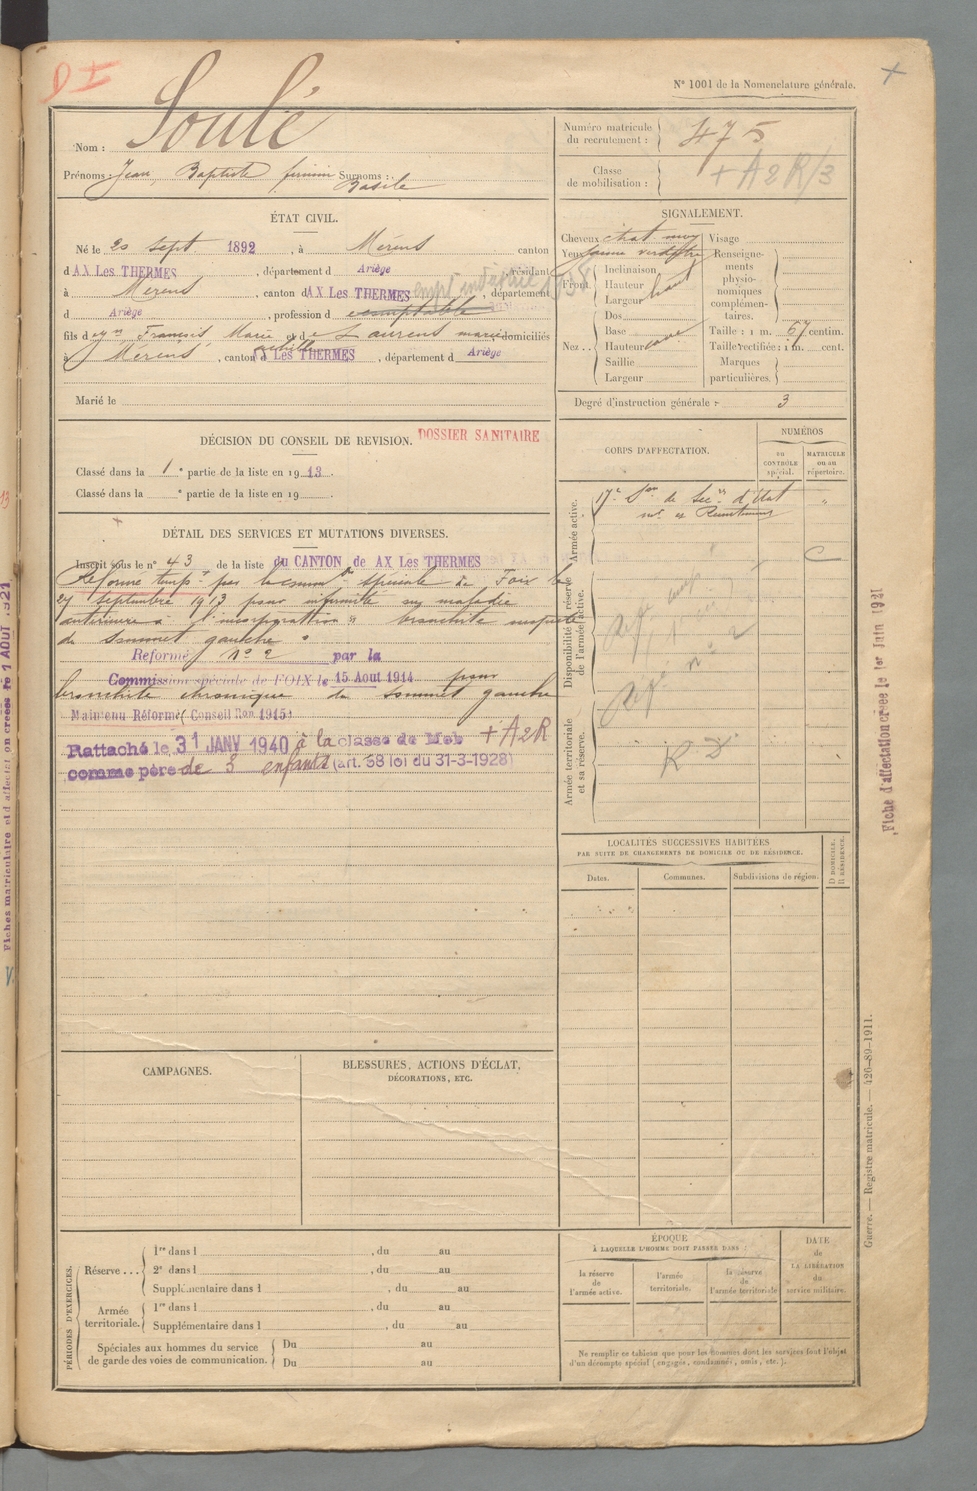 D I
N° 1001 de la Nomenclature générale.
+
Nom : Soulé
Prénoms : Jean, Baptiste, firmin Surnoms :
Basile
Numéro matricule du recrutement : 475
Classe de mobilisation : + A 2 R/3
ÉTAT CIVIL.
Né le 20 sept 1892, à Mérens canton
d AX Les THERMES, département d Ariège, résidant
à Mérens, canton d AX Les THERMES, département
d Ariège, profession d comptable
fils de François Marie et de Laurens marie domiciliés
à Mérens, canton d Les THERMES, département d Ariège
Marié le
SIGNALEMENT.
Cheveux chat
Yeux jaune verdâtre
Front. Inclinaison
Hauteur haut
Largeur
Nez .. Dos
Base
Hauteur
Saillie
Largeur
Visage
Renseignements physionomiques complémentaires.
Taille : 1 m. 67 centim.
Taille rectifiée : 1 m. cent.
Marques particulières.
Degré d'instruction générale : 3
DÉCISION DU CONSEIL DE REVISION. DOSSIER SANITAIRE
Classé dans la 1e partie de la liste en 1913.
Classé dans la e partie de la liste en 19 .
DÉTAIL DES SERVICES ET MUTATIONS DIVERSES.
Inscrit sous le n° 43 de la liste du CANTON de AX Les THERMES
Réformé temp. par la comm. spéciale de Foix le
27 septembre 1913 pour infirmité ou maladie
antérieure à l'incorporation "bronchite suspecte
du sommet gauche"
Reformé n° 2 par la
Commission spéciale de FOIX le 15 Aout 1914 pour
bronchite chronique du sommet gauche
Maintenu Réformé (Conseil Ron 1915)
Rattaché le 31 JANV 1940 à la classe de Mob + A2R
comme père de 3 enfants (art. 58 loi du 31-3-1928)
CORPS D'AFFECTATION.
NUMÉROS
au CONTRÔLE spécial.
MATRICULE ou au répertoire.
Armée active.
17e Son de Secres d'Etat
mr et Recrutement "
Disponibilité et réserve de l'armée active.
Réfé temp
Réfé n° 2
Armée territoriale et sa réserve.
LOCALITÉS SUCCESSIVES HABITÉES
PAR SUITE DE CHANGEMENTS DE DOMICILE OU DE RÉSIDENCE.
Dates.
Communes.
Subdivisions de région.
D DOMICILE.
R RÉSIDENCE.
CAMPAGNES.
BLESSURES, ACTIONS D'ÉCLAT,
DÉCORATIONS, ETC.
PÉRIODES D'EXERCICES.
Réserve ...
1re dans l , du au
2e dans l , du au
Supplémentaire dans l , du au
Armée territoriale.
1re dans l , du au
Supplémentaire dans l , du au
Spéciales aux hommes du service
de garde des voies de communication.
Du au
Du au
ÉPOQUE
À LAQUELLE L'HOMME DOIT PASSER DANS :
la réserve de l'armée active.
l'armée territoriale.
la réserve de l'armée territoriale
DATE de LA LIBÉRATION du service militaire.
Ne remplir ce tableau que pour les hommes dont les services font l'objet
d'un décompte spécial (engagés, condamnés, omis, etc.).
Fiche d'affectation créée le 1er Juin 1921
Guerre. — Registre matricule. — 426-89-1911.